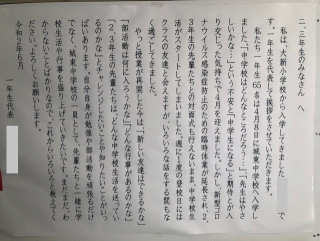 二、三年生のみなさん へ
私は、大新小学校から入学してきました　　　　　で
す。一年生を代表して挨拶をさせていただきます。
私たち一年生65名は4月8日に城東中学校へ入学し
ました。「中学校はどんなところだろう…」「先生はやさ
しいかな…」という不安と「中学生になる」と期待とが入
り交じった気持ちで4月を迎えました。しかし、新型コロ
ナウイルス感染症防止のための臨時休業が延長され2、
3年生の先輩たちとの対面式も行えないまま中学校生
活がスタートしてしまいました。週に九度の登校日には
クラスの友達と会えますが、いろいろな話をする間もな
く過ごしてきました。
やっと授業が再開した今は「新しい友達はできるかな」
「部活動は何にしようか」「どんな行事があるのかな」
「2、3年生の先輩たちはどんな中学校生活を送ってい
るのかな」など、チャレンジしたいことや知りたいことがいっ
ぱいあります。自分自身が勉強や部活動を頑張るだけ
でなく、城東中学校の一員として、先輩たちと一緒に学
校生活や行事を盛り上げていきたいです。まだまだ、わ
からないことばかりなので、これからいろいろと教えてく
ださい。よろしくお願いします。
令和２年６月
一年生代表